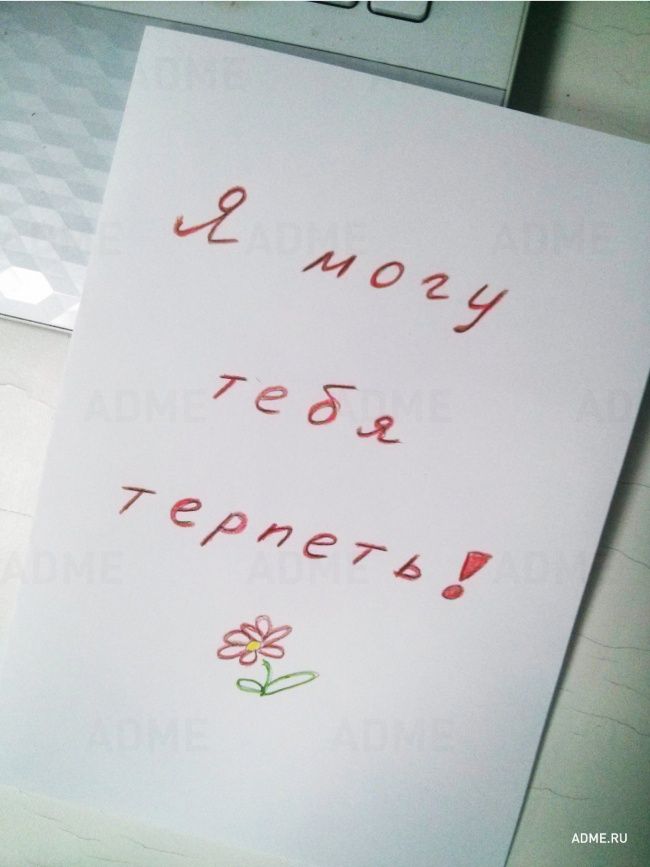 Я могу
тебя
терпеть!
ADME.RU